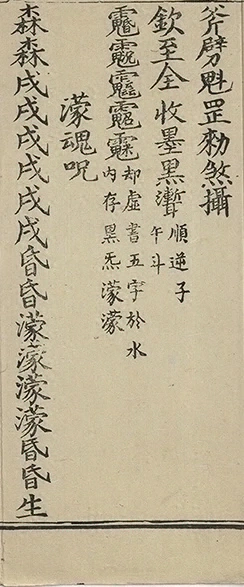 斧劈魁罡勑煞攝
欽至全收墨黑聻
順逆子
午斗
却虛書五字於水
内存黑炁濛濛
濛魂呪
森森戌戌戌戌戌戌昏昏濛濛濛濛昏昏生